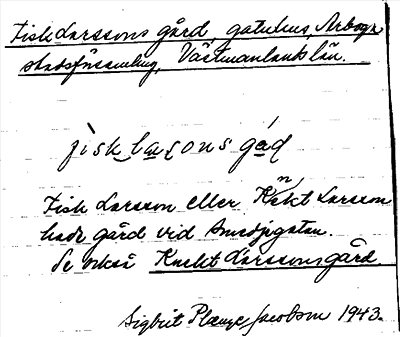 Fisk Larssons gård, gatuhus, Arboga
stadsförsamling, Västmanlands län.
fisk la̲sons gád
Fisk Larsson eller Knekt Larsson
hade gård vid Smedjegatan.
Se också Knekt Larssons gård
Sigbrit Plænge Jacobson 1943.